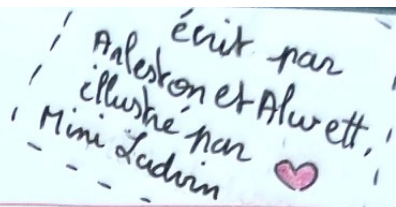 écrit par
Arleston et Alwett,
illustré par
Mini Ludvin